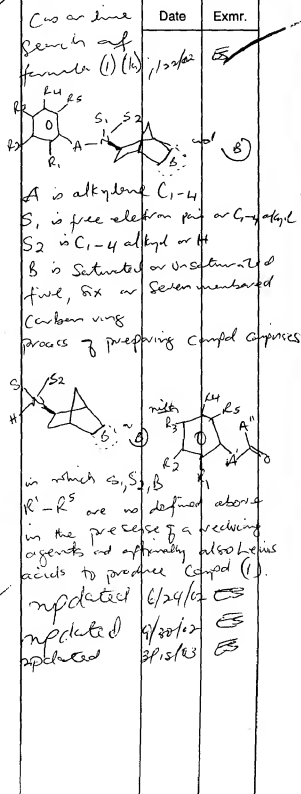 Cas on line Date Exmr.
search of
formula (1) (k) ; 1/22/02 ES
R4
R3 R5
R2 R1 A S1 S2 and B B
A is alkylene C1-4
S1 is free eletron pair or C1-4 alkyl
S2 is C1-4 alkyl or H
B is Saturated or Unsaturated
five, six or seven membered
Carbon ring
process of preparing compd comprises
S1 S2
H B B with R4 R5 R3 R2 R1 A' A" O
in which S1, S2, B
R1 - R5 are as defined above
in the presense of a reducing
agents and optionally also Lewis
acids to produce Compd (1).
updated 6/24/02 ES
updated 9/30/02 ES
updated 3/15/03 ES